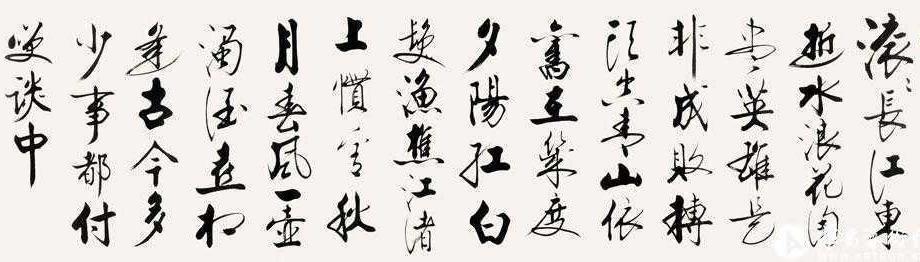 滚〻長江東
逝水浪花淘
尽英雄是
非成敗轉
頭空青山依
舊在幾度
夕陽紅白
髮漁樵江渚
上慣看秋
月春風一壺
濁酒喜相
逢古今多
少事都付
笑談中